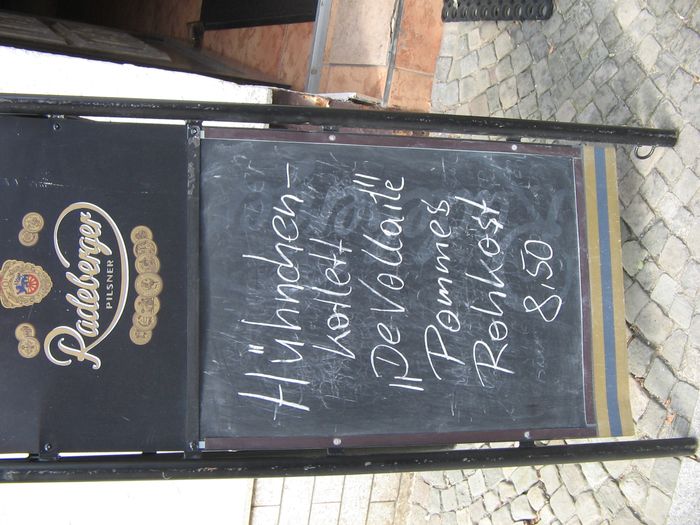 Radeberger
PILSNER
Hühnchen-
kotlett
"DeVollaile"
Pommes
Rohkost
8,50